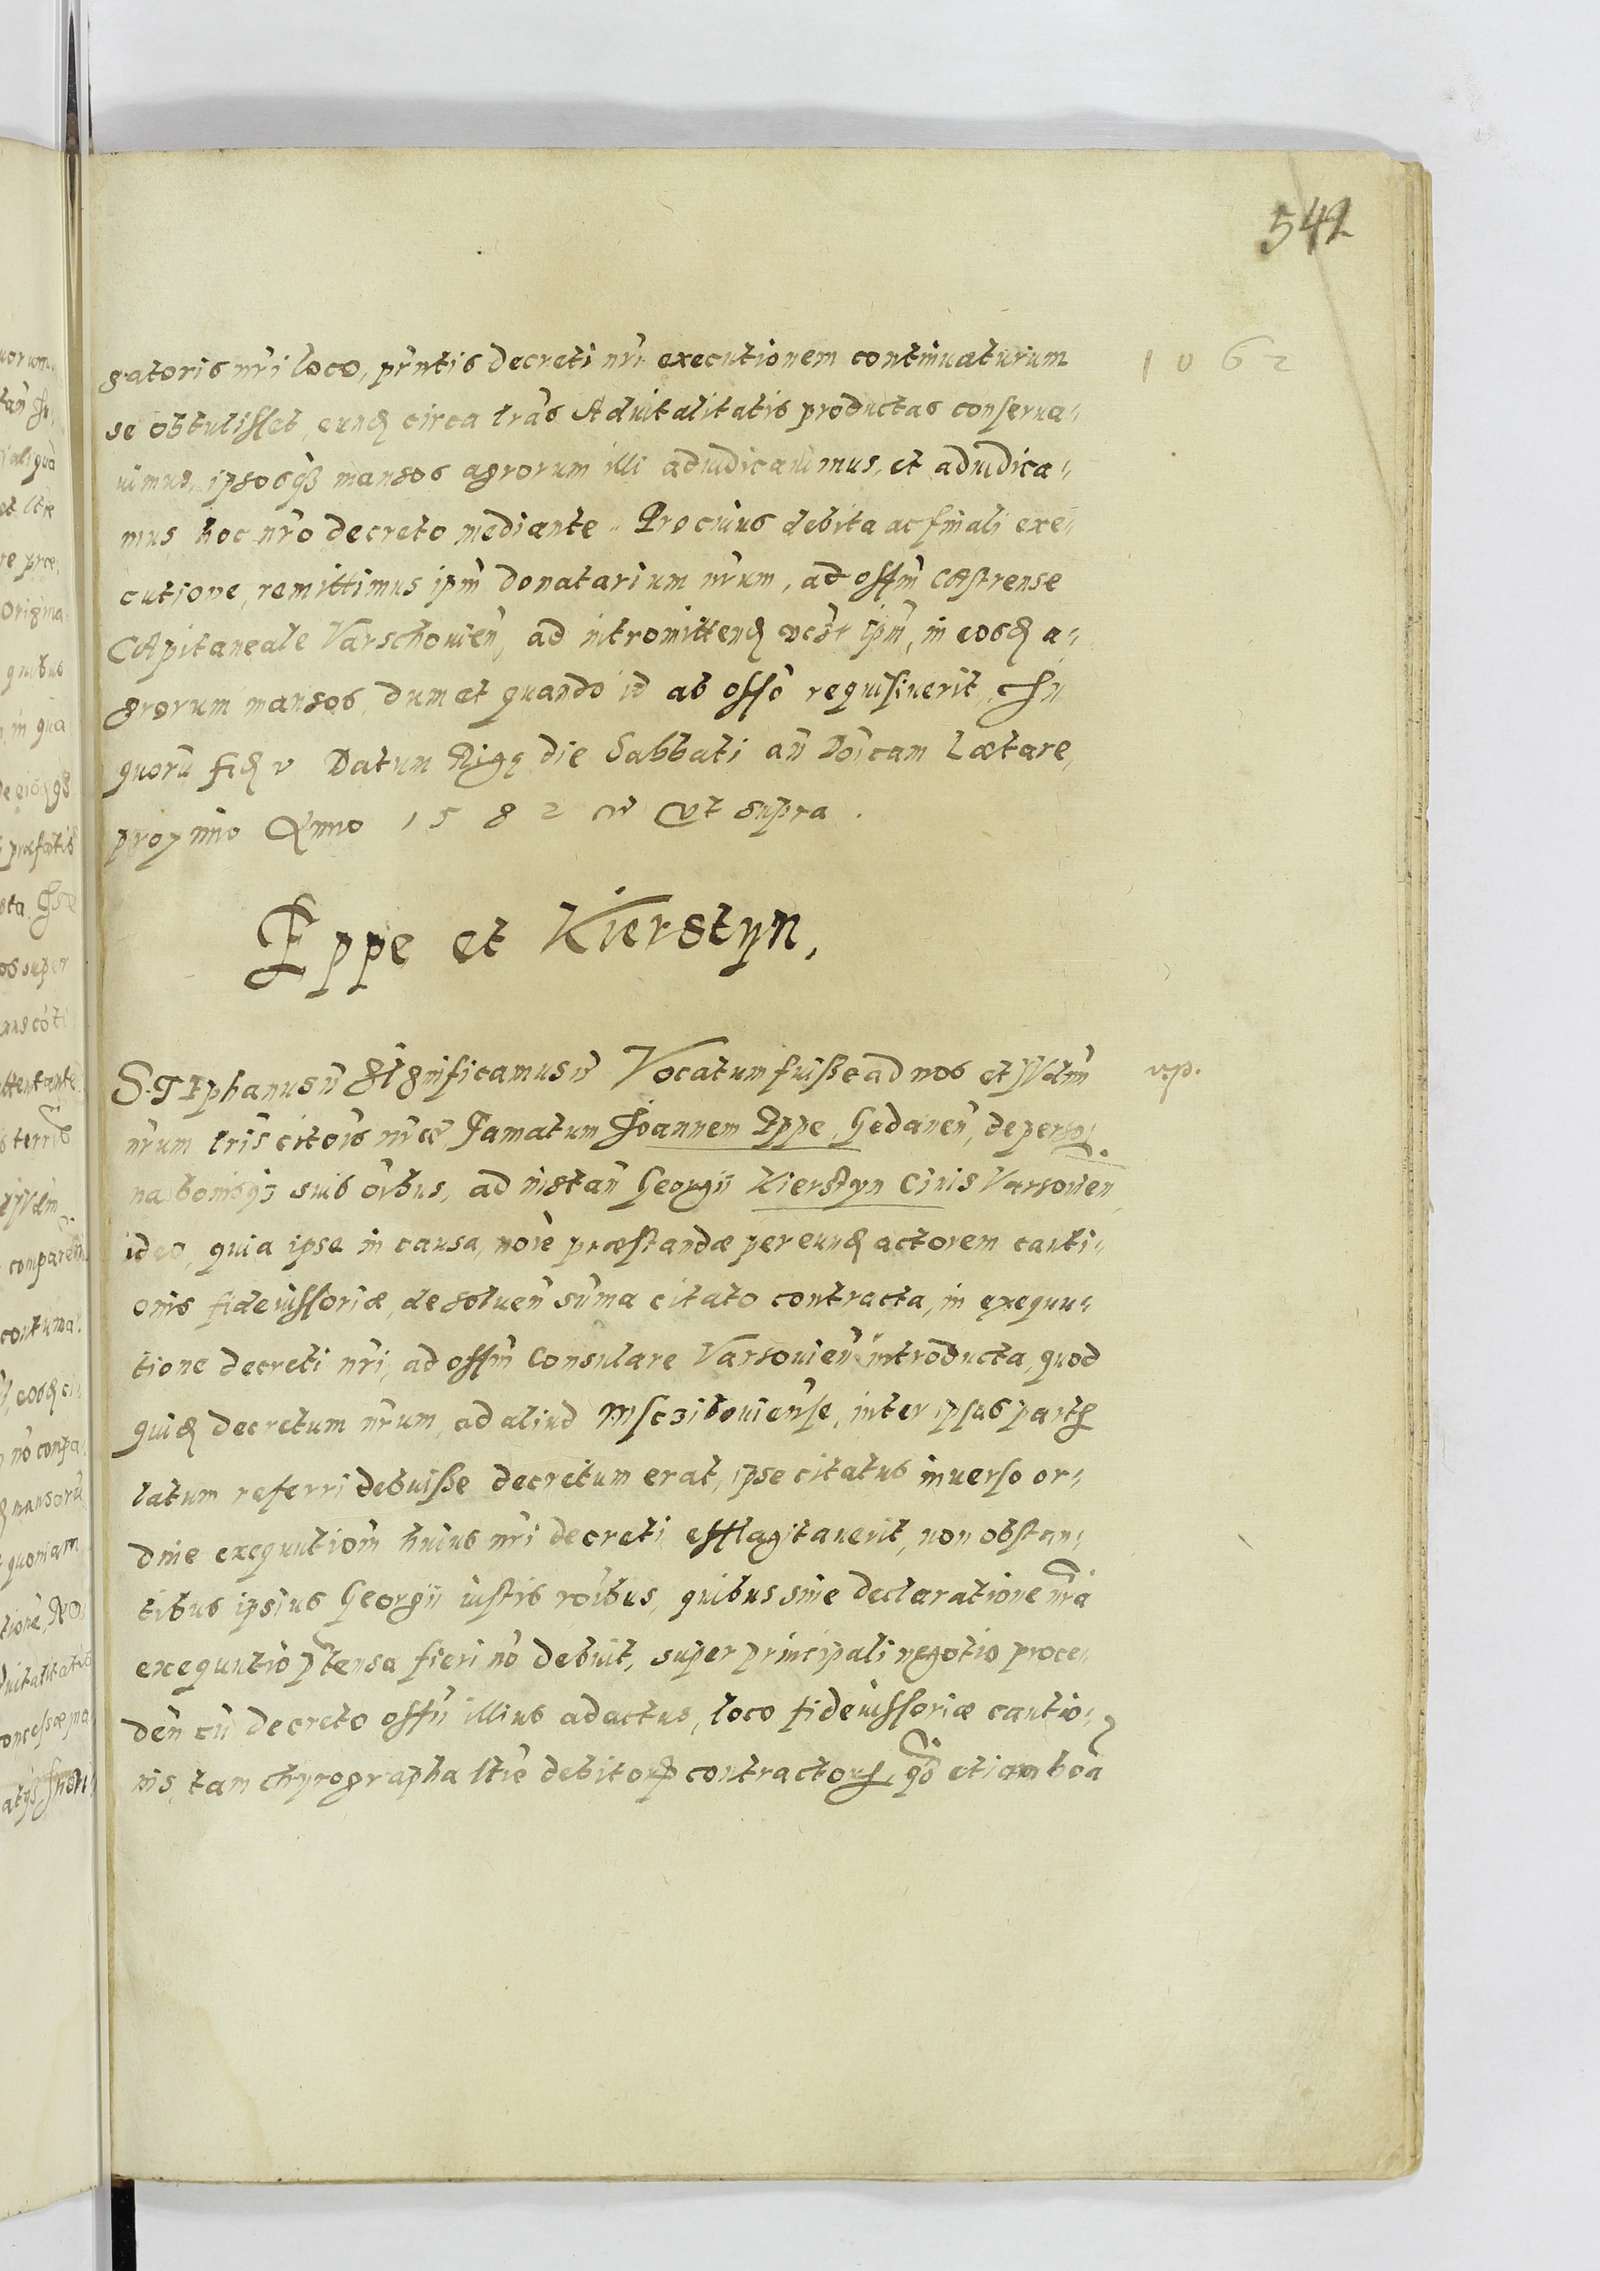 542
1062
gatoris nr̃i loco, pr̃ntis decreti nr̃i executionem continuaturum
se obtulisset, eund circa lr̃as Aduitalitatis productas conserua-
uimus, ipsosq3 mansos agrorum illi adiudicauimus, et adiudica-
mus hoc nr̃o decreto mediante. Pro cuius debita ac finali exe-
cutione, remittimus ipm̃ donatarium nr̃um, ad offm̃ castrense
Capitaneale Varschouien̄, ad intromittend ipm̃, in eosd a-
grorum mansos, dum et quando id ab offo requisiuerit, In
quorũ fid Datum Rigę die Sabbati an̄ Dominicam Lætare,
proximo Anno 1582 ut supra.
Eppe et Kierstyn,
Stephanus Significamus Vocatum fuisse ad nos et Iudm̃
v.p.
nr̃um lris citõis nr̃æ Famatum Ioannem Eppe, Gedanen̄, de perso-
na bonisq3 suis oĩbus, ad instan̄ Georgii Kierstyn Ciuis Varsouien
ideo, quia ipse in causa, noĩe præstandæ per eund actorem cauti-
onis fideiussoriæ, de soluen̄ sũma citato contracta, in exequu-
tione decreti nr̃i, ad offm̃ Consulare Varsouien̄ introducta, quod
quid decretum nr̃um, ad aliud Msczibouiense, inter ipsas partes
latum referri debuisse decretum erat, ipse citatus inuerso or-
dine exequutiom̃ huius nr̃i decreti efflagitauerit, non obstan-
tibus ipsius Georgii iustis rõibus, quibus sine declaratione nr̃a
exequutio p̃tensa fieri nõ debuit, super principali negotio proce-
den̄ cũ decreto offii illius adactus, loco fideiussoriæ cautio-
nis, tam chyrographa ltrie debitorum contractorum, qd etiam boa